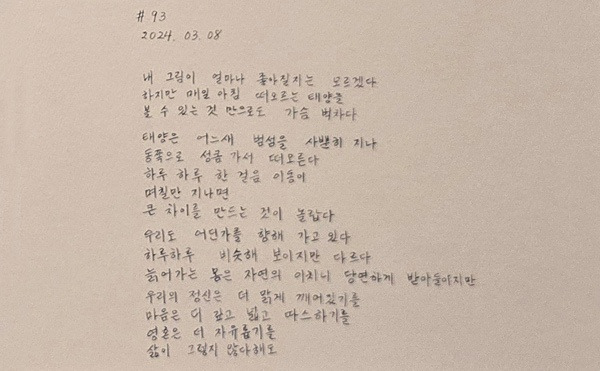 # 93
2024. 03. 08
내 그림이 얼마나 좋아질지는 모르겠다
하지만 매일 아침 떠오르는 태양을
볼 수 있는 것 만으로도 가슴 벅차다
태양은 어느새 범섬을 사뿐히 지나
동쪽으로 성큼 가서 떠오른다
하루 하루 한 걸음 이동이
며칠만 지나면
큰 차이를 만드는 것이 놀랍다
우리도 어딘가를 향해 가고 있다
하루하루 비슷해 보이지만 다르다
늙어가는 몸은 자연의 이치니 당연하게 받아들이지만
우리의 정신은 더 맑게 깨어있기를
마음은 더 깊고 넓고 따스하기를
영혼은 더 자유롭기를
삶이 그렇지 않다해도